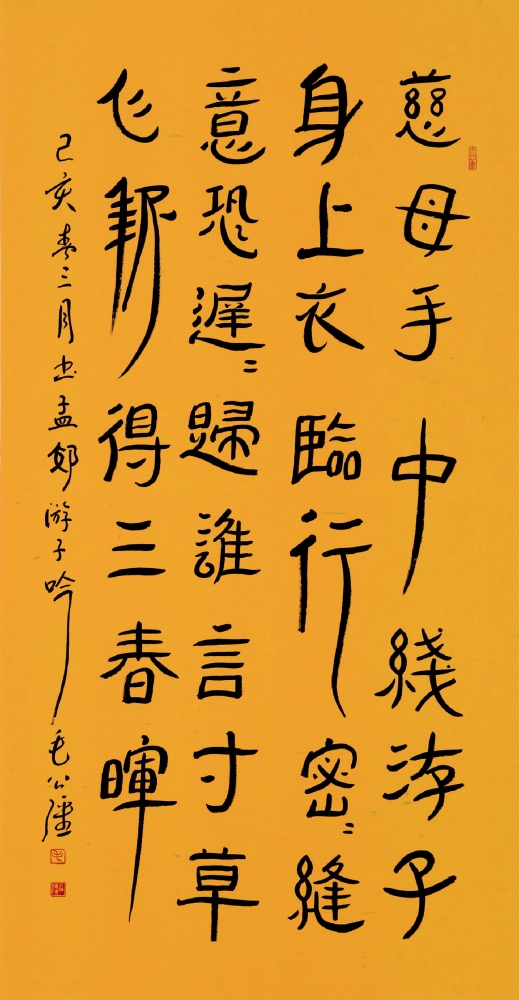 慈母手中綫游子
身上衣臨行密〻縫
意恐遲〻歸誰言寸草
心報得三春暉
己亥春三月书孟郊游子吟毛公